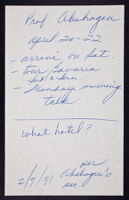 Prof. Abshagen
April 20-22
- arrive on Sat.
- tour Bavaria
- Monday morning
talk
what hotel?
per
2/7/91 Abshagen's
sec.